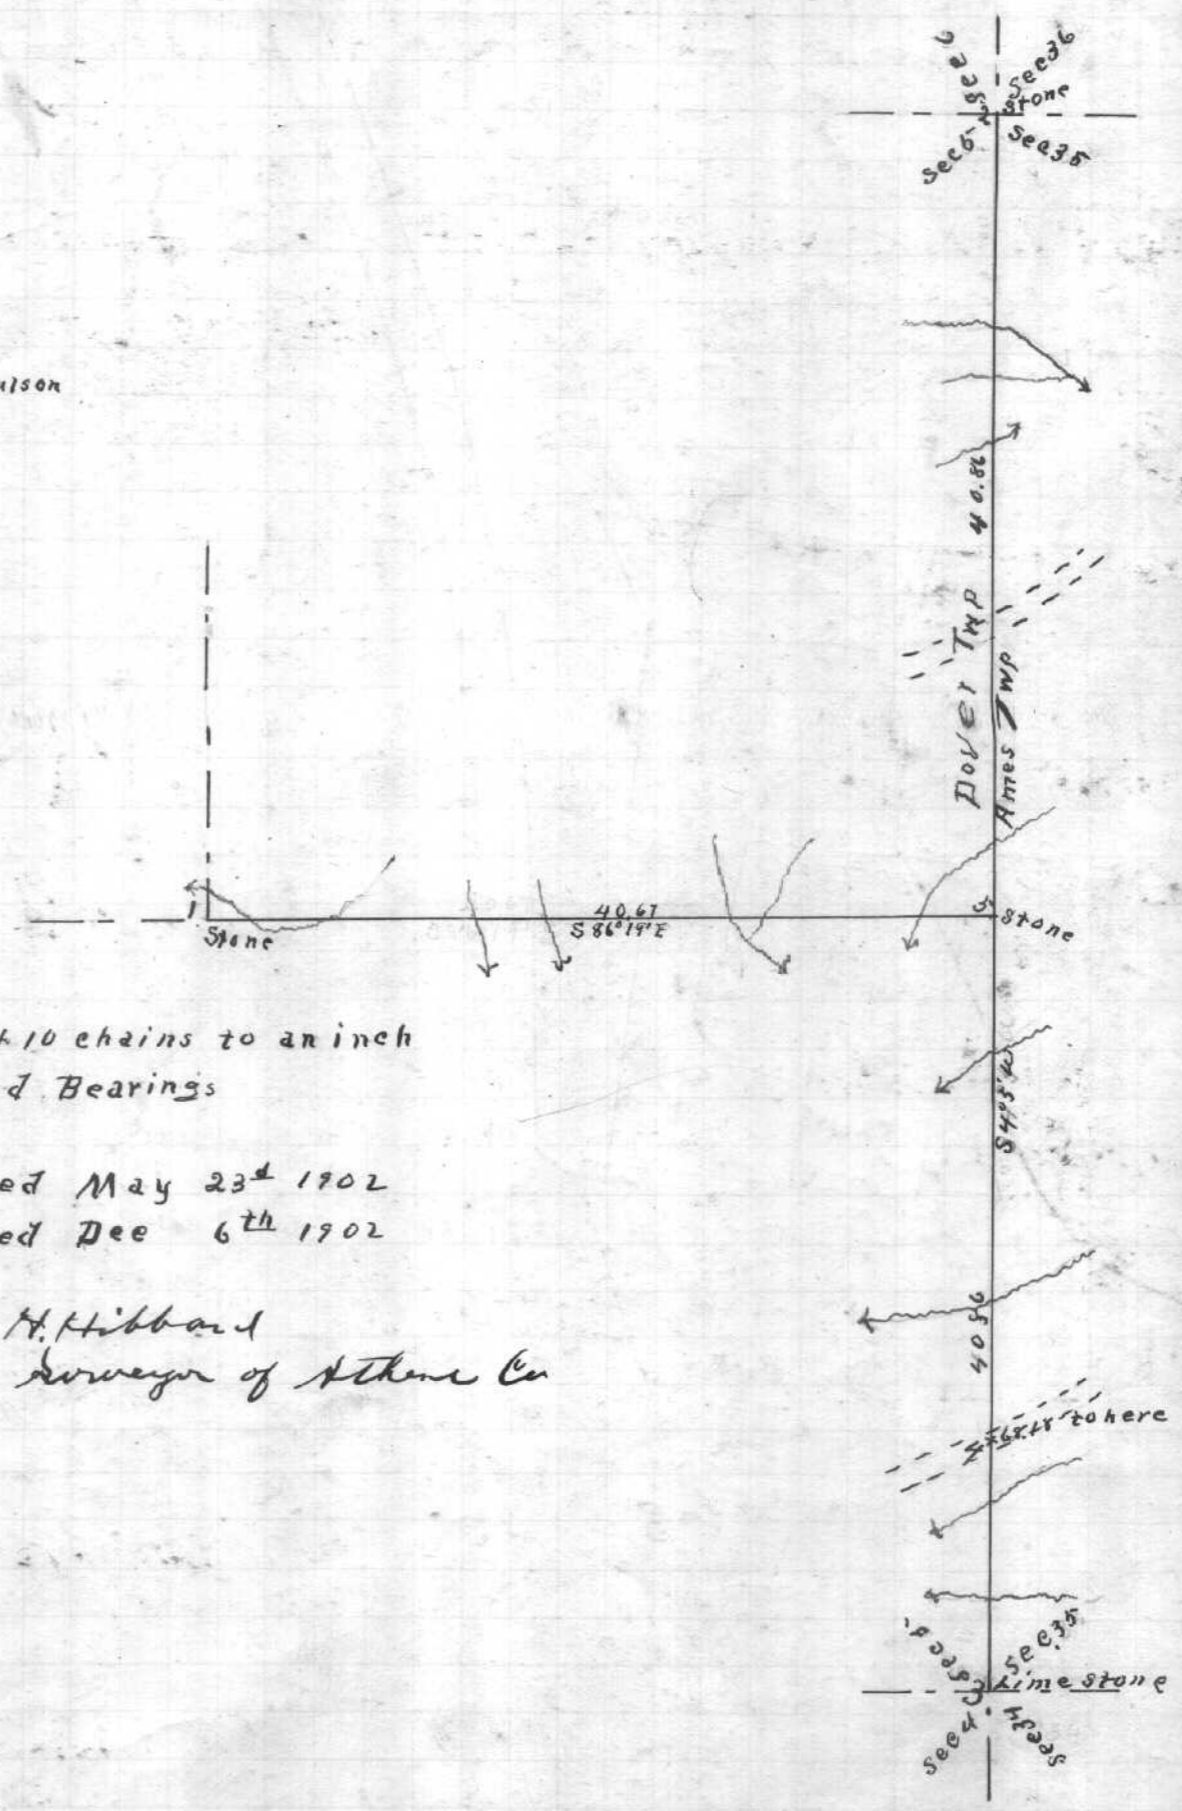 Sec 6
Sec 36
2
Stone
Sec 5
Sec 35
ulson
40.86
Dover Twp
Ames Twp
1
Stone
40.67
S 86° 19' E
5
Stone
10 chains to an inch
d Bearings
S 4° 5' W
ed May 23d 1902
ed Dec 6th 1902
H. Hibbard
Surveyor of Athens Co
40 86
to here
Sec 5
Sec. 35
3
Lime stone
Sec 4
Sec 34